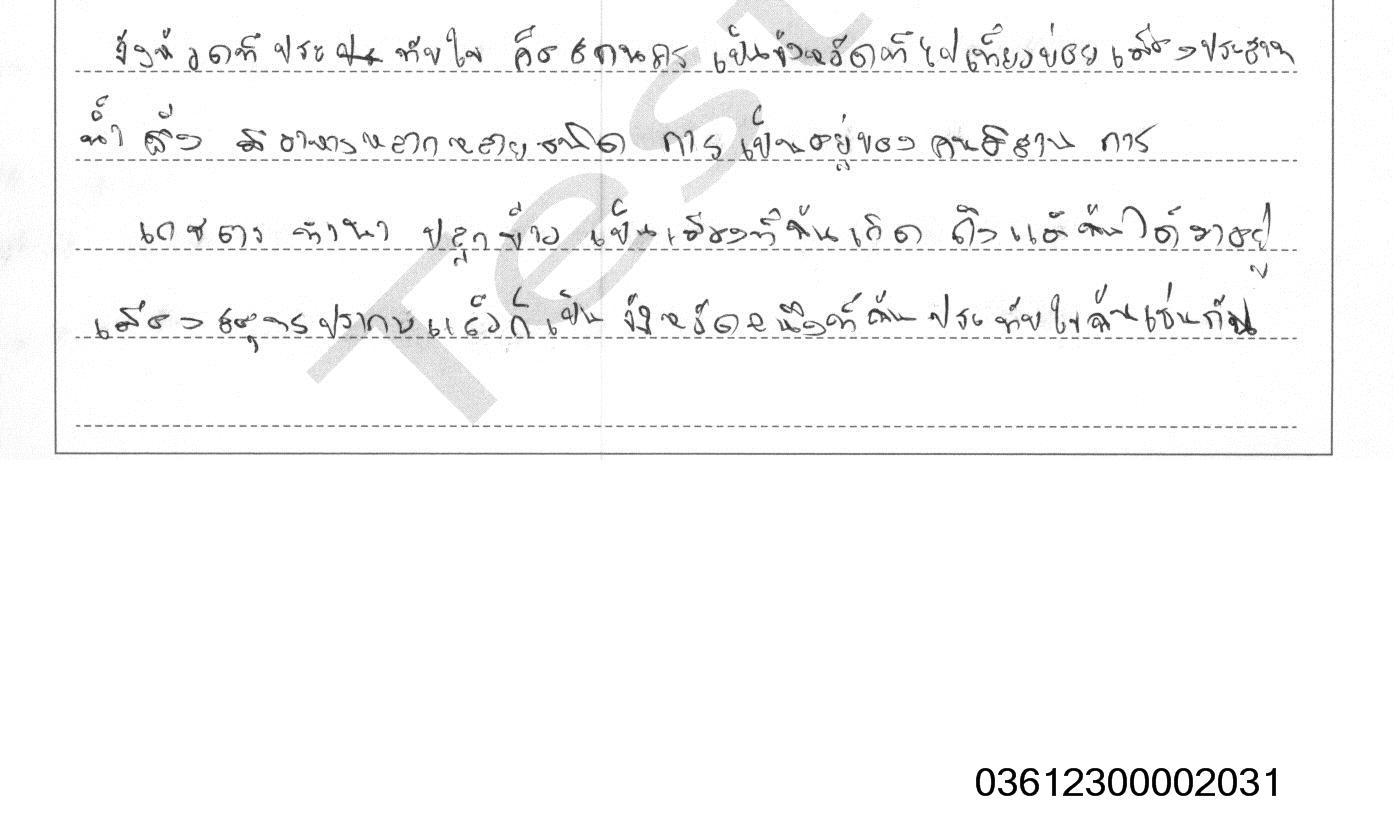 จังหวัดที่ประทับใจ คือสกลนคร เป็นจังหวัดที่ไปเที่ยวบ่อย เมือง
น้ำผึ้ง มีอาหารหลากหลายชนิด การเป็นอยู่ของคนอีสาน การ
เกษตร ทำนา ปลูกข้าว เป็นเมืองที่ฉันเกิด ถึงแต่ฉันได้มาอยู่
เมืองสมุทรปราการแล้วก็เป็นจังหวัดหนึ่งที่ฉันประทับใจฉันเช่นกัน
Test
03612300002031